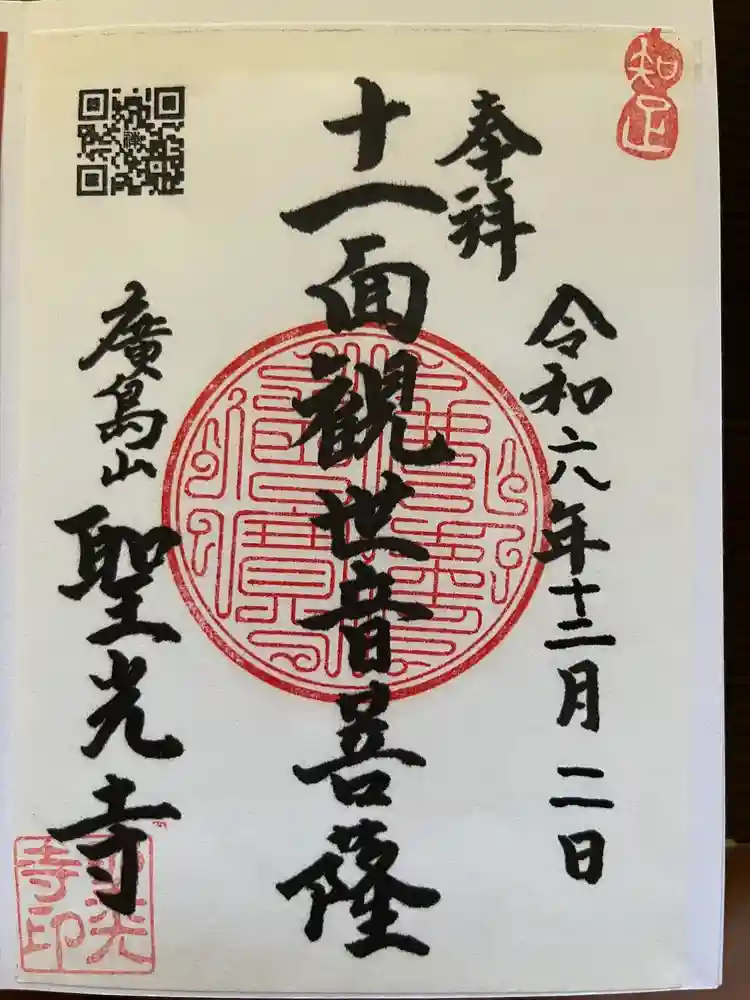 知足
奉拝
令和六八年十二月二日
十一面観世音菩薩
廣島山
聖光寺
聖光
寺印